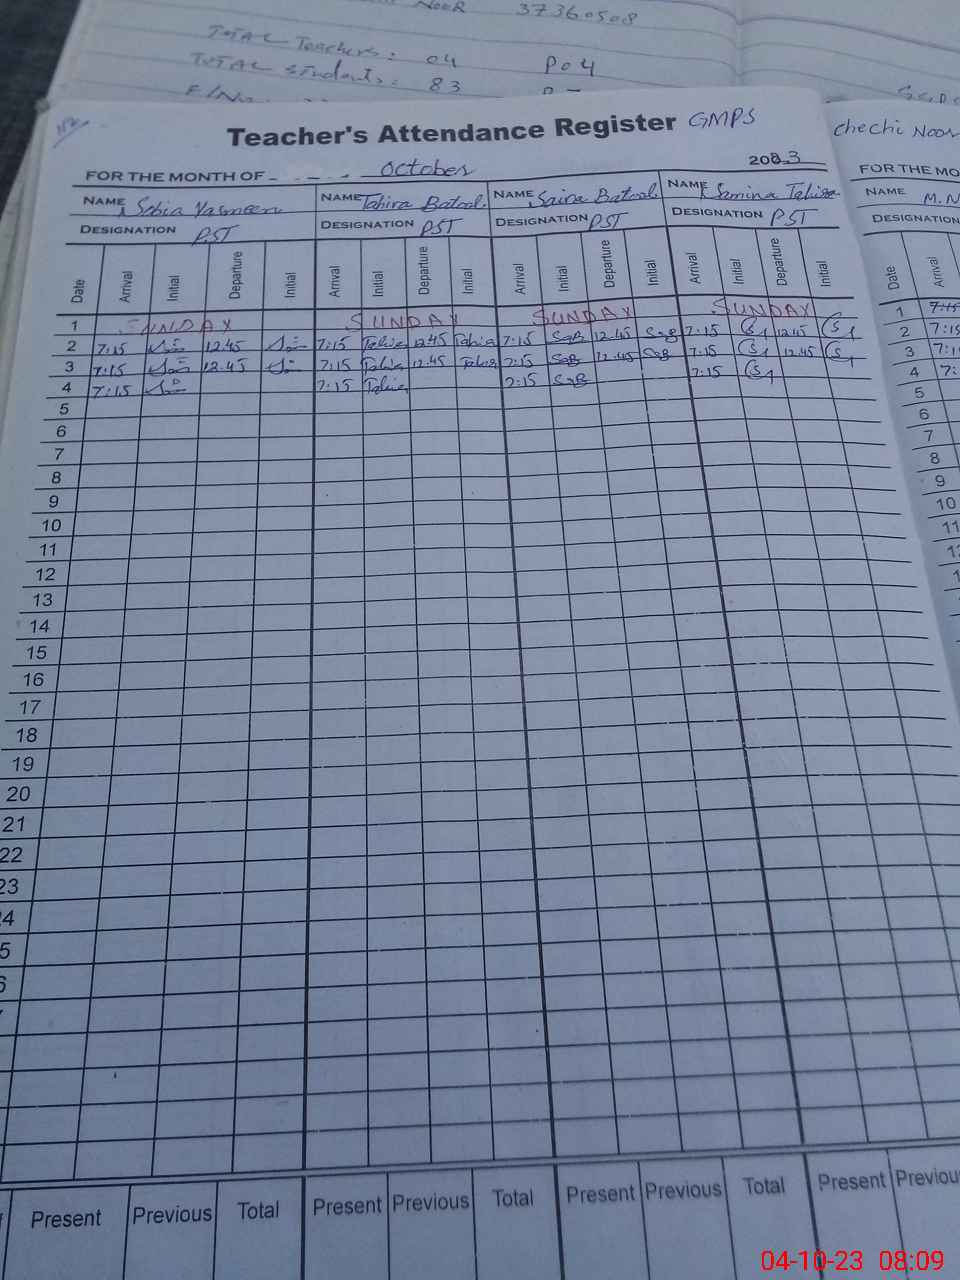 NOOR 37360508
TOTAL Teachers: 04 P04
TOTAL students: 83
Teacher's Attendance Register GMPS
chechi Noor
FOR THE MONTH OF October 2023
FOR THE MO
NAME Sobia Yasmeen NAME Tahira Batool. NAME Saira Batool NAME Samina Tahira
NAME M.N
DESIGNATION PST DESIGNATION PST DESIGNATION PST DESIGNATION PST
DESIGNATION
Date Arrival Initial Departure Initial Arrival Initial Departure Initial Arrival Initial Departure Initial Arrival Initial Departure Initial
Date Arrival
1 SUNDAY SUNDAY SUNDAY SUNDAY 1 7:15
2 7:15 12.45 7:15 Tahira 12.45 Tahira 7:15 SaB 12.45 SaB 7:15 12.45 2 7:15
3 7:15 12.45 7:15 Tahira 12.45 Tahira 7:15 SaB 12.45 SaB 7:15 12.45 3
4 7:15 7:15 Tahira 7:15 SaB 7:15 4
5 5
6 6
7 7
8 8
9 9
10 10
11 11
12
13
14
15
16
17
18
19
20
21
22
23
Present Previous Total Present Previous Total Present Previous Total Present
04-10-23 08:09